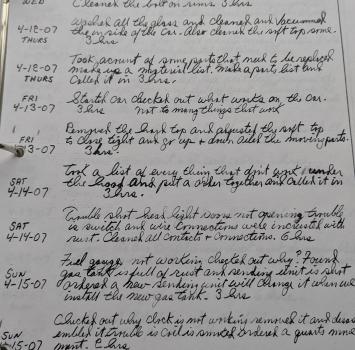 WED Cleaned the bolt on rims. 3 hrs
4-12-07 Washed all the glass and cleaned and vacuumed
THURS the inside of the car. also cleaned the soft top some.
3 hrs
4-12-07 Took account of some parts that need to be replaced
THURS made up a material list. Make a parts list and
called it in 3 hrs.
FRI Started car checked out what works on the car.
4-13-07 3 hrs not to many things that work
FRI Removed the hard top and adjusted the soft top
-13-07 to close tight and go up + down oiled the moving parts.
3 hrs.
SAT Took a list of every thing that don't work under
4-14-07 the hood and put a order together and called it in
3 hrs.
SAT Trouble shot head light doors not opening trouble
4-14-07 is switch and wire connections were incrusted with
rust. Cleaned all contacts + connections. 6 hrs
SUN Fuel gauge not working checked out why? Found
4-15-07 gas tank is full of rust and sending unit is shot
ordered a new sending unit will change it when we
install the new gas tank. 3 hrs
SUN Checked out why clock is not working removed it and
-15-07 it trouble is coil is ordered a quartz
ment. 2 hrs